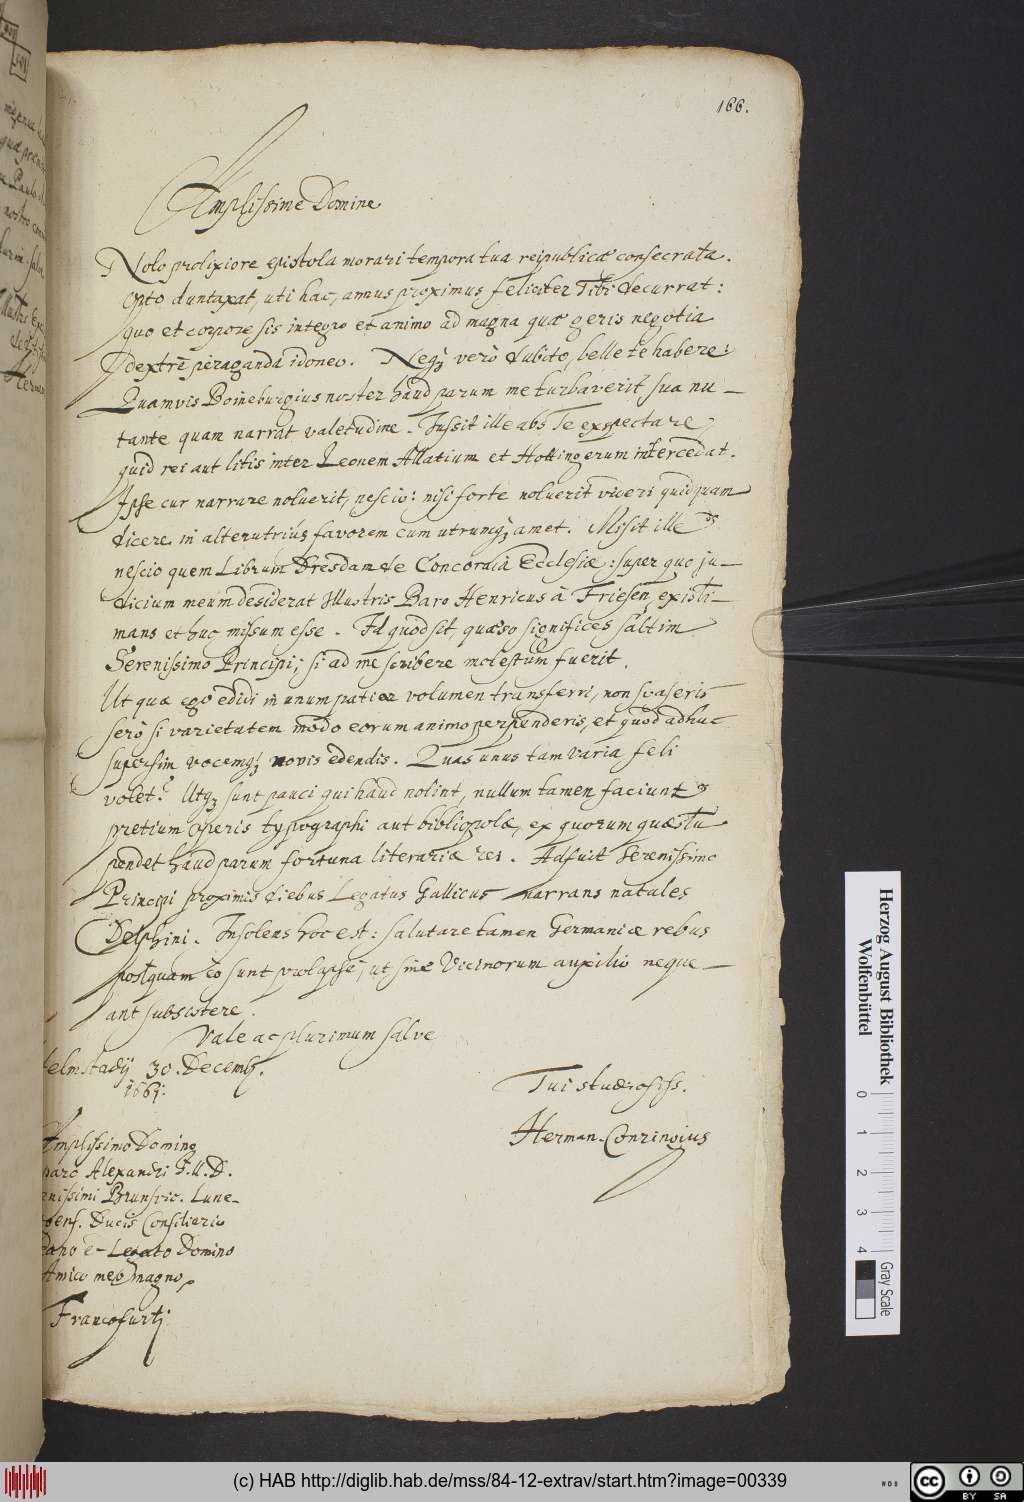 166.
Amplissime Domine
Nolo prolixiore epistola morari tempora tua reipublicae consecrata.
opto duntaxat, uti hac, annus proximus feliciter Tibi decurrat:
quo et corpore sis integro et animo ad magna quae geris negotia
dextrè peraganda idoneo. Neq; verò dubito, belle te habere:
Quamvis Boineburgius noster haud parum me turbaverit sua nu-
tante quam narrat valetudine. Jussit ille abs Te exspectare,
quid rei aut litis inter Leonem Allatium et Hottingerum intercedat.
Ipse cur narrare noluerit, nescio: nisi forte noluerit viveri quidquam
dicere in alterutrius favorem cum utrumq; amet. Misit ille
nescio quem Librum Dresdam de Concordia Ecclesiae: super quo ju-
dicium meum desiderat Illustris Baro Henricus à Friesen, existi-
mans et huc missum esse. Id quod sit, quaeso significes saltim
Serenissimo Principi; si ad me scribere molestum fuerit.
Ut quae ego edidi in unum patiar volumen transferri, non svaseris
serò si varietatem modo eorum animo perpenderis, et quod adhuc
supersim vocemq; novis edendis. Quas unus tam varia feli
volet? Utq; sunt pauci qui haud nolint, nullum tamen faciunt
pretium operis typographi aut bibliopolae, ex quorum quaestu
pendet haud parum fortuna literariae rei. Adfuit Serenissimo
Principi proximis diebus Legatus Gallicus narrans natales
Delphini. Insolens hoc est: salutare tamen Germaniae rebus
postquam eo sunt prolapsae, ut sine Vicinorum auxilio neque-
ant subsistere.
Vale ac plurimum salve
elmstadij 30. Decemb.
1661.
Tui studiosiss.
Herman. Conringius
Amplissimo Domino
Alexandri J.U.D.
nissimi Brunsvic. Lune-
Ducis Consiliario
Legato Domino
Amico meo magno
Francofurti
Herzog August Bibliothek
Wolfenbüttel
0 1 2 3 4
Gray Scale
(c) HAB http://diglib.hab.de/mss/84-12-extrav/start.htm?image=00339
cc BY SA